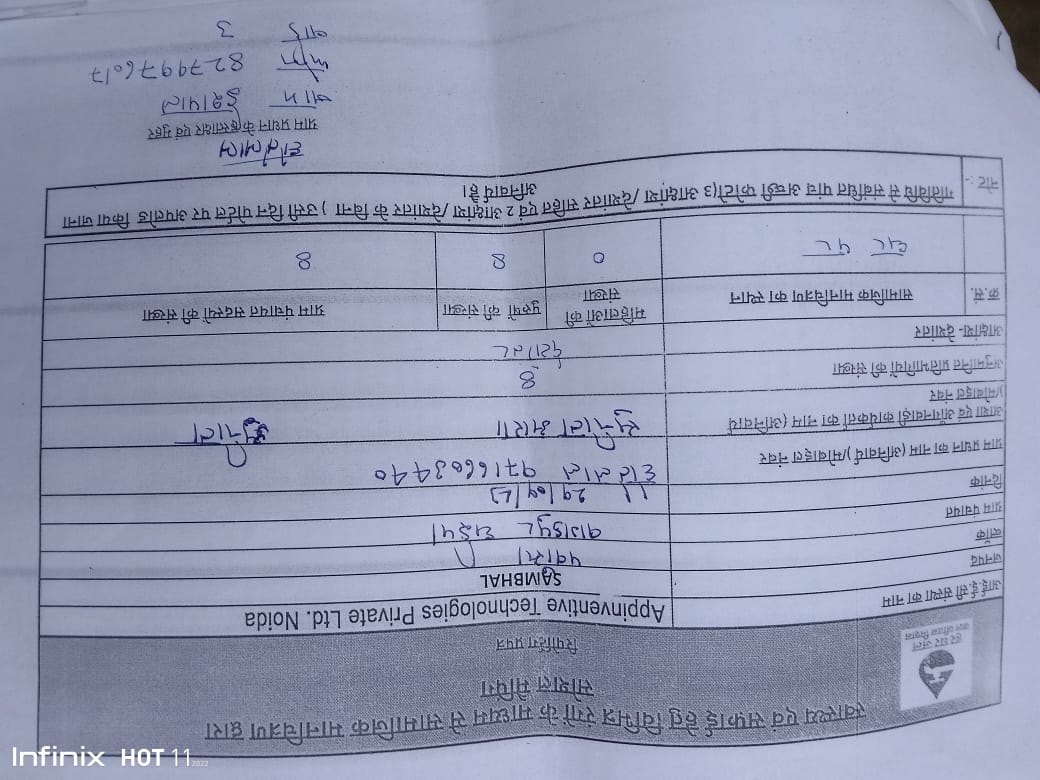 स्वास्थ्य एवं सफाई हेतु विभिन्न रंगों के माध्यम से सामाजिक मानचित्रण द्वारा
सोशल मैपिंग
रिपोर्टिंग प्रपत्र
हर घर जल
जल जीवन मिशन
आई.ई.सी संस्था का नाम Appinventive Technologies Private Ltd. Noida
जनपद SAMBHAL
ब्लॉक पवासा
ग्राम पंचायत
दिनांक 29/09/23
ग्राम प्रधान का नाम (अनिवार्य)/मोबाइल नंबर 9716603440
आशा एवं आँगनवाड़ी कार्यकर्ता का नाम (अनिवार्य)/मोबाइल नंबर सुनीता आशा सुनीता
अनुमानित प्रतिभागियों की संख्या 8
आक्षांश- देशांतर
क्र.सं. सामाजिक मानचित्रण का स्थान महिलाओं की संख्या पुरुषों की संख्या ग्राम पंचायत सदस्यों की संख्या
घर पर 0 8 8
नोट :- गतिविधि से संबंधित पांच अच्छी फोटो(3 आक्षांश /देशांतर सहित एवं 2 आक्षांश /देशांतर के बिना ) उसी दिन पोर्टल पर अपलोड किया जाना अनिवार्य है।
ग्राम प्रधान के हस्ताक्षर एवं मुहर
नाम
8279976017
वार्ड 3
Infinix HOT 11 2022